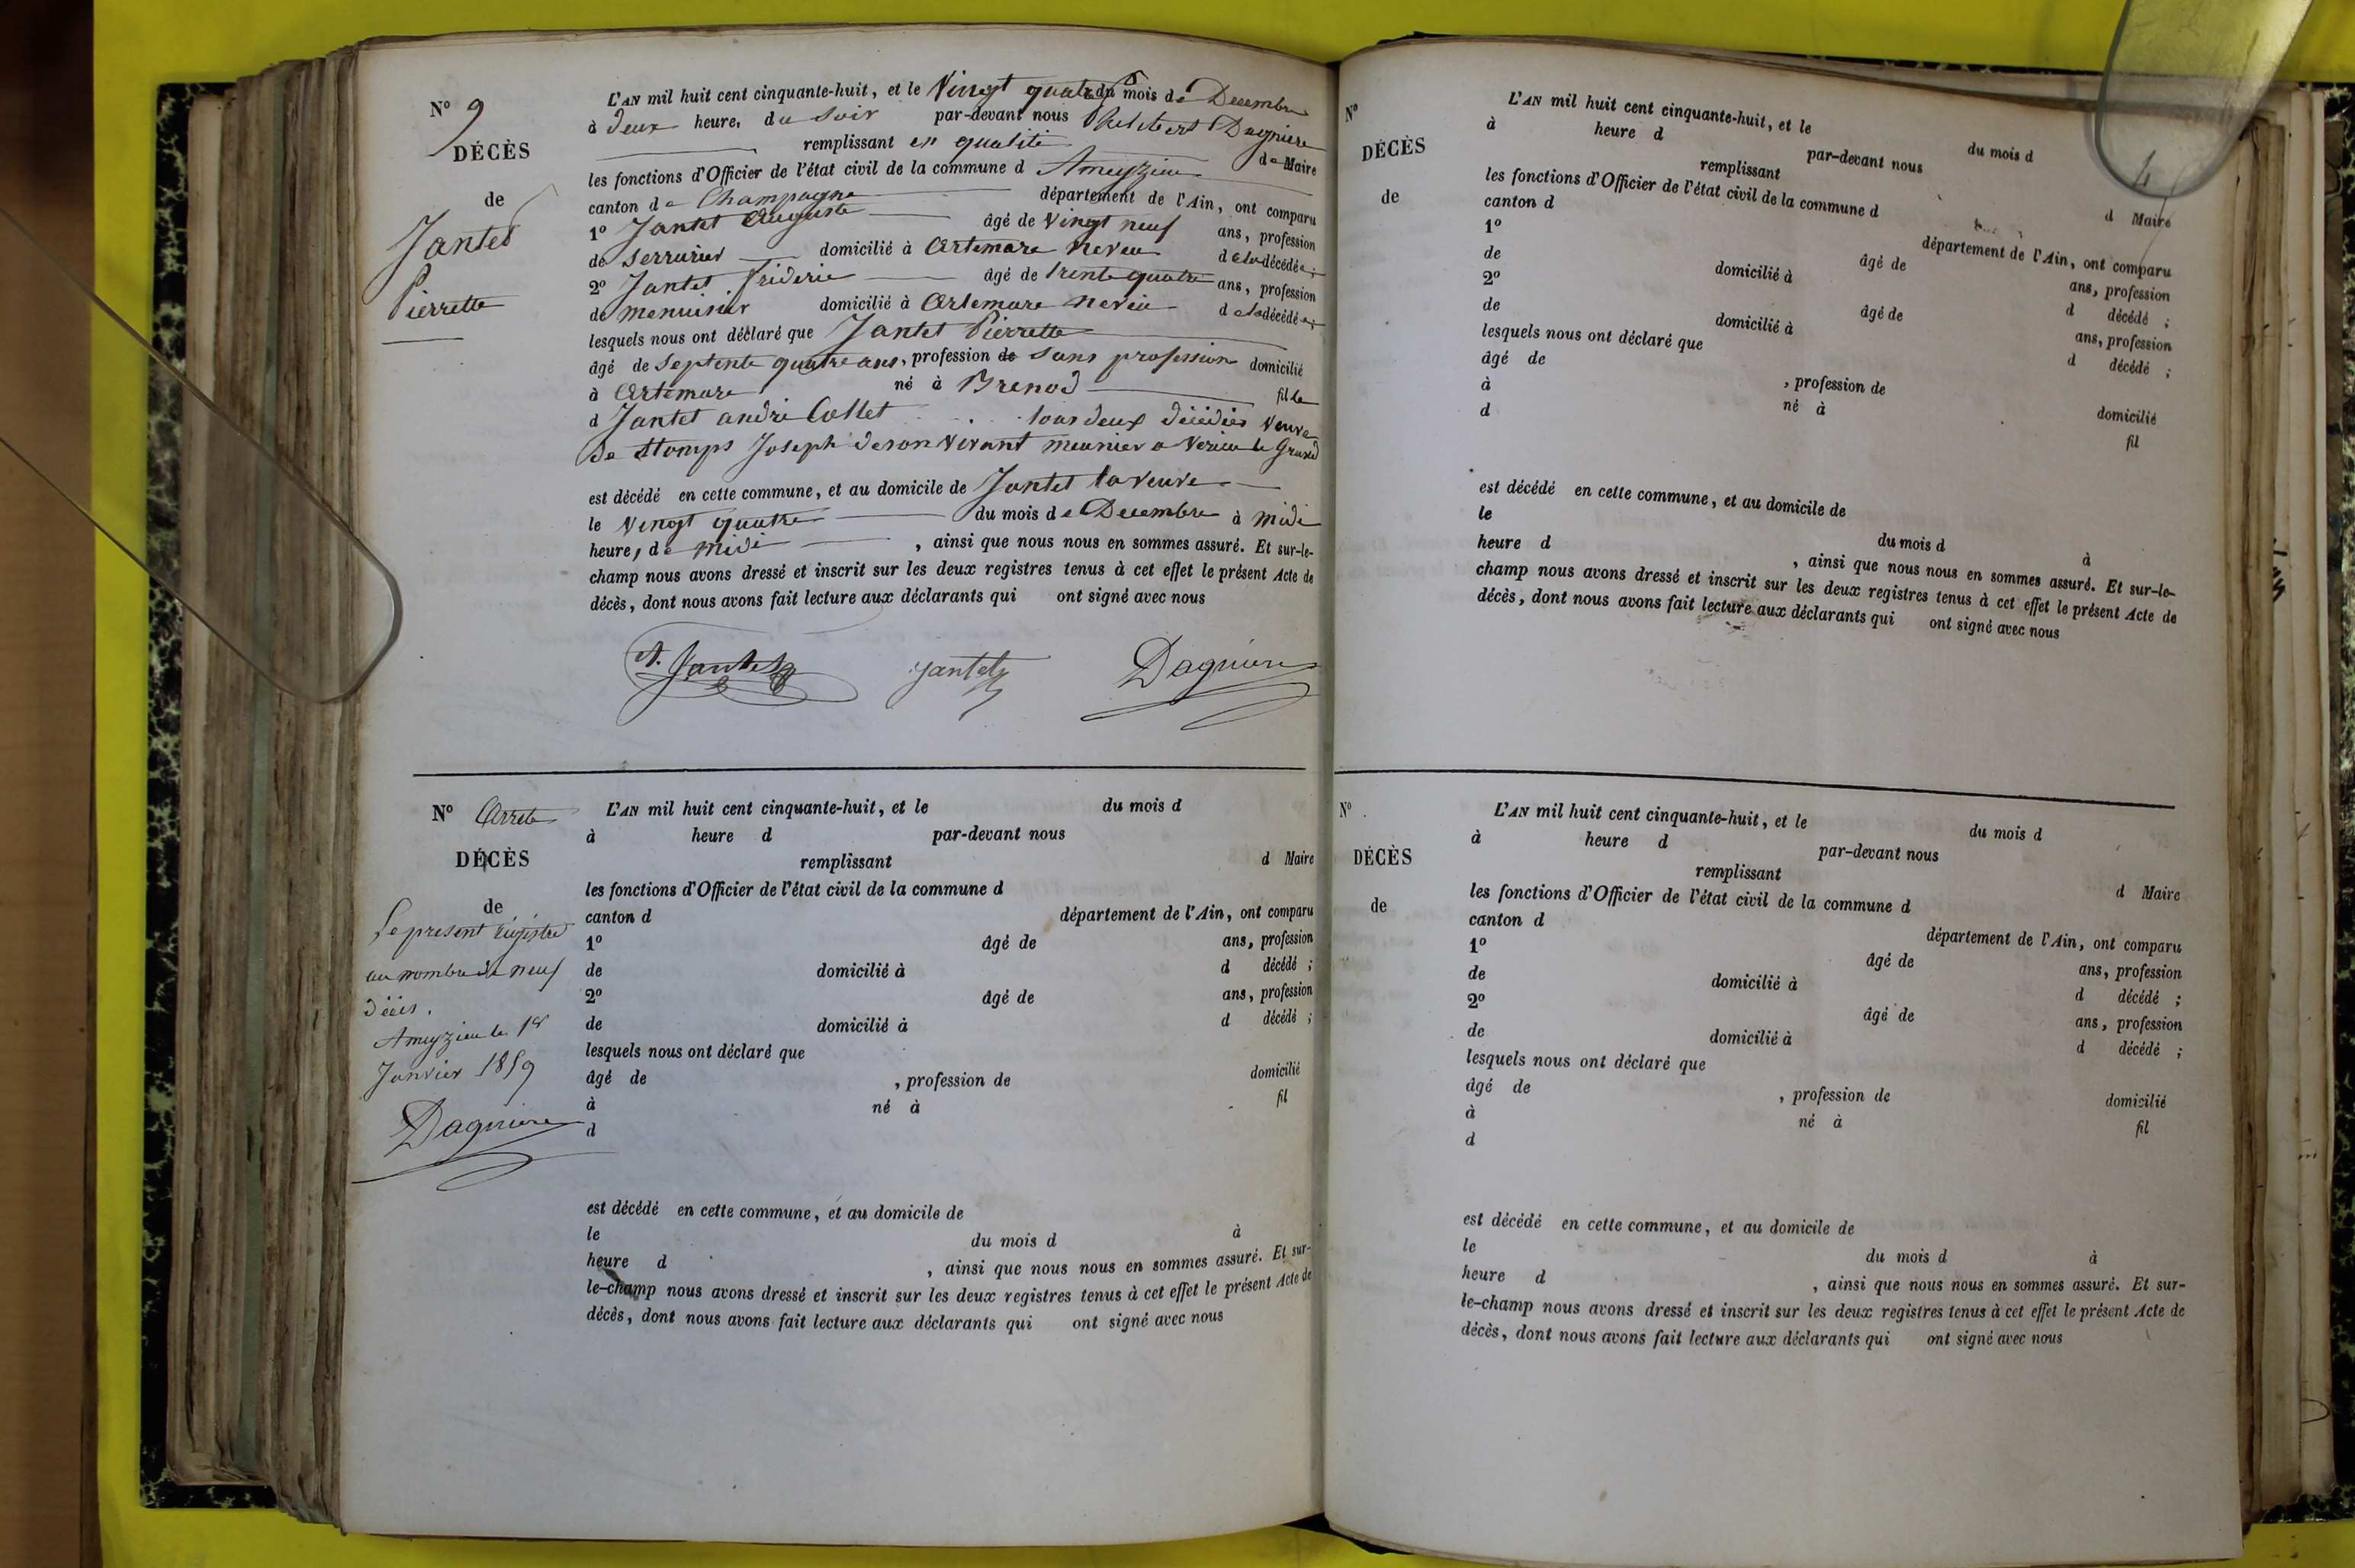 N° 9
DÉCÈS
de
Jantet
Pierrette
L'AN mil huit cent cinquante-huit, et le Vingt quatre du mois de Decembre
à deux heure, du Soir par-devant nous Philibert Dagniere
remplissant en qualité de Maire
les fonctions d'Officier de l'état civil de la commune d Ameyzieu
canton de Champagne département de l'Ain, ont comparu
1° Jantet Auguste âgé de Vingt neuf ans, profession
de Serrurier domicilié à Artemare neveu de la décédée;
2° Jantet frideric âgé de trente quatre ans, profession
de menuisier domicilié à Artemare neveu de la décédée;
lesquels nous ont déclaré que Jantet Pierrette
âgé de Septente quatre ans, profession de Sans profession domicilié
à Artemare né à Brenod fille
d Jantet andré Collet tous deux décédés Veuve
De Stomps Joseph de son vivant meunier a Verieu le Grand
est décédé en cette commune, et au domicile de Jantet la veuve
le Vingt quatre du mois de Decembre à midi
heure, de midi, ainsi que nous nous en sommes assuré. Et sur-le-
champ nous avons dressé et inscrit sur les deux registres tenus à cet effet le présent Acte de
décès, dont nous avons fait lecture aux déclarants qui ont signé avec nous
A. Jantet Jantet Dagniere
N° Arrete
DÉCÈS
de
Le present régistre
au nombre de neuf
décès.
Ameyzieu le 1er
Janvier 1859
Dagniere
L'AN mil huit cent cinquante-huit, et le du mois d
à heure d par-devant nous
remplissant d Maire
les fonctions d'Officier de l'état civil de la commune d
canton d département de l'Ain, ont comparu
1° âgé de ans, profession
de domicilié à d décédé ;
2° âgé de ans, profession
de domicilié à d décédé ;
lesquels nous ont déclaré que
âgé de , profession de domicilié
à né à fil
d
est décédé en cette commune, et au domicile de
le du mois d à
heure d , ainsi que nous nous en sommes assuré. Et sur-
le-champ nous avons dressé et inscrit sur les deux registres tenus à cet effet le présent Acte de
décès, dont nous avons fait lecture aux déclarants qui ont signé avec nous
N°
DÉCÈS
de
L'AN mil huit cent cinquante-huit, et le du mois d
à heure d par-devant nous
remplissant d Maire
les fonctions d'Officier de l'état civil de la commune d
canton d département de l'Ain, ont comparu
1° âgé de ans, profession
de domicilié à d décédé ;
2° âgé de ans, profession
de domicilié à d décédé ;
lesquels nous ont déclaré que
âgé de , profession de domicilié
à né à fil
d
est décédé en cette commune, et au domicile de
le du mois d à
heure d , ainsi que nous nous en sommes assuré. Et sur-le-
champ nous avons dressé et inscrit sur les deux registres tenus à cet effet le présent Acte de
décès, dont nous avons fait lecture aux déclarants qui ont signé avec nous
N°
DÉCÈS
de
L'AN mil huit cent cinquante-huit, et le du mois d
à heure d par-devant nous
remplissant d Maire
les fonctions d'Officier de l'état civil de la commune d
canton d département de l'Ain, ont comparu
1° âgé de ans, profession
de domicilié à d décédé ;
2° âgé de ans, profession
de domicilié à d décédé ;
lesquels nous ont déclaré que
âgé de , profession de domicilié
à né à fil
d
est décédé en cette commune, et au domicile de
le du mois d à
heure d , ainsi que nous nous en sommes assuré. Et sur-
le-champ nous avons dressé et inscrit sur les deux registres tenus à cet effet le présent Acte de
décès, dont nous avons fait lecture aux déclarants qui ont signé avec nous